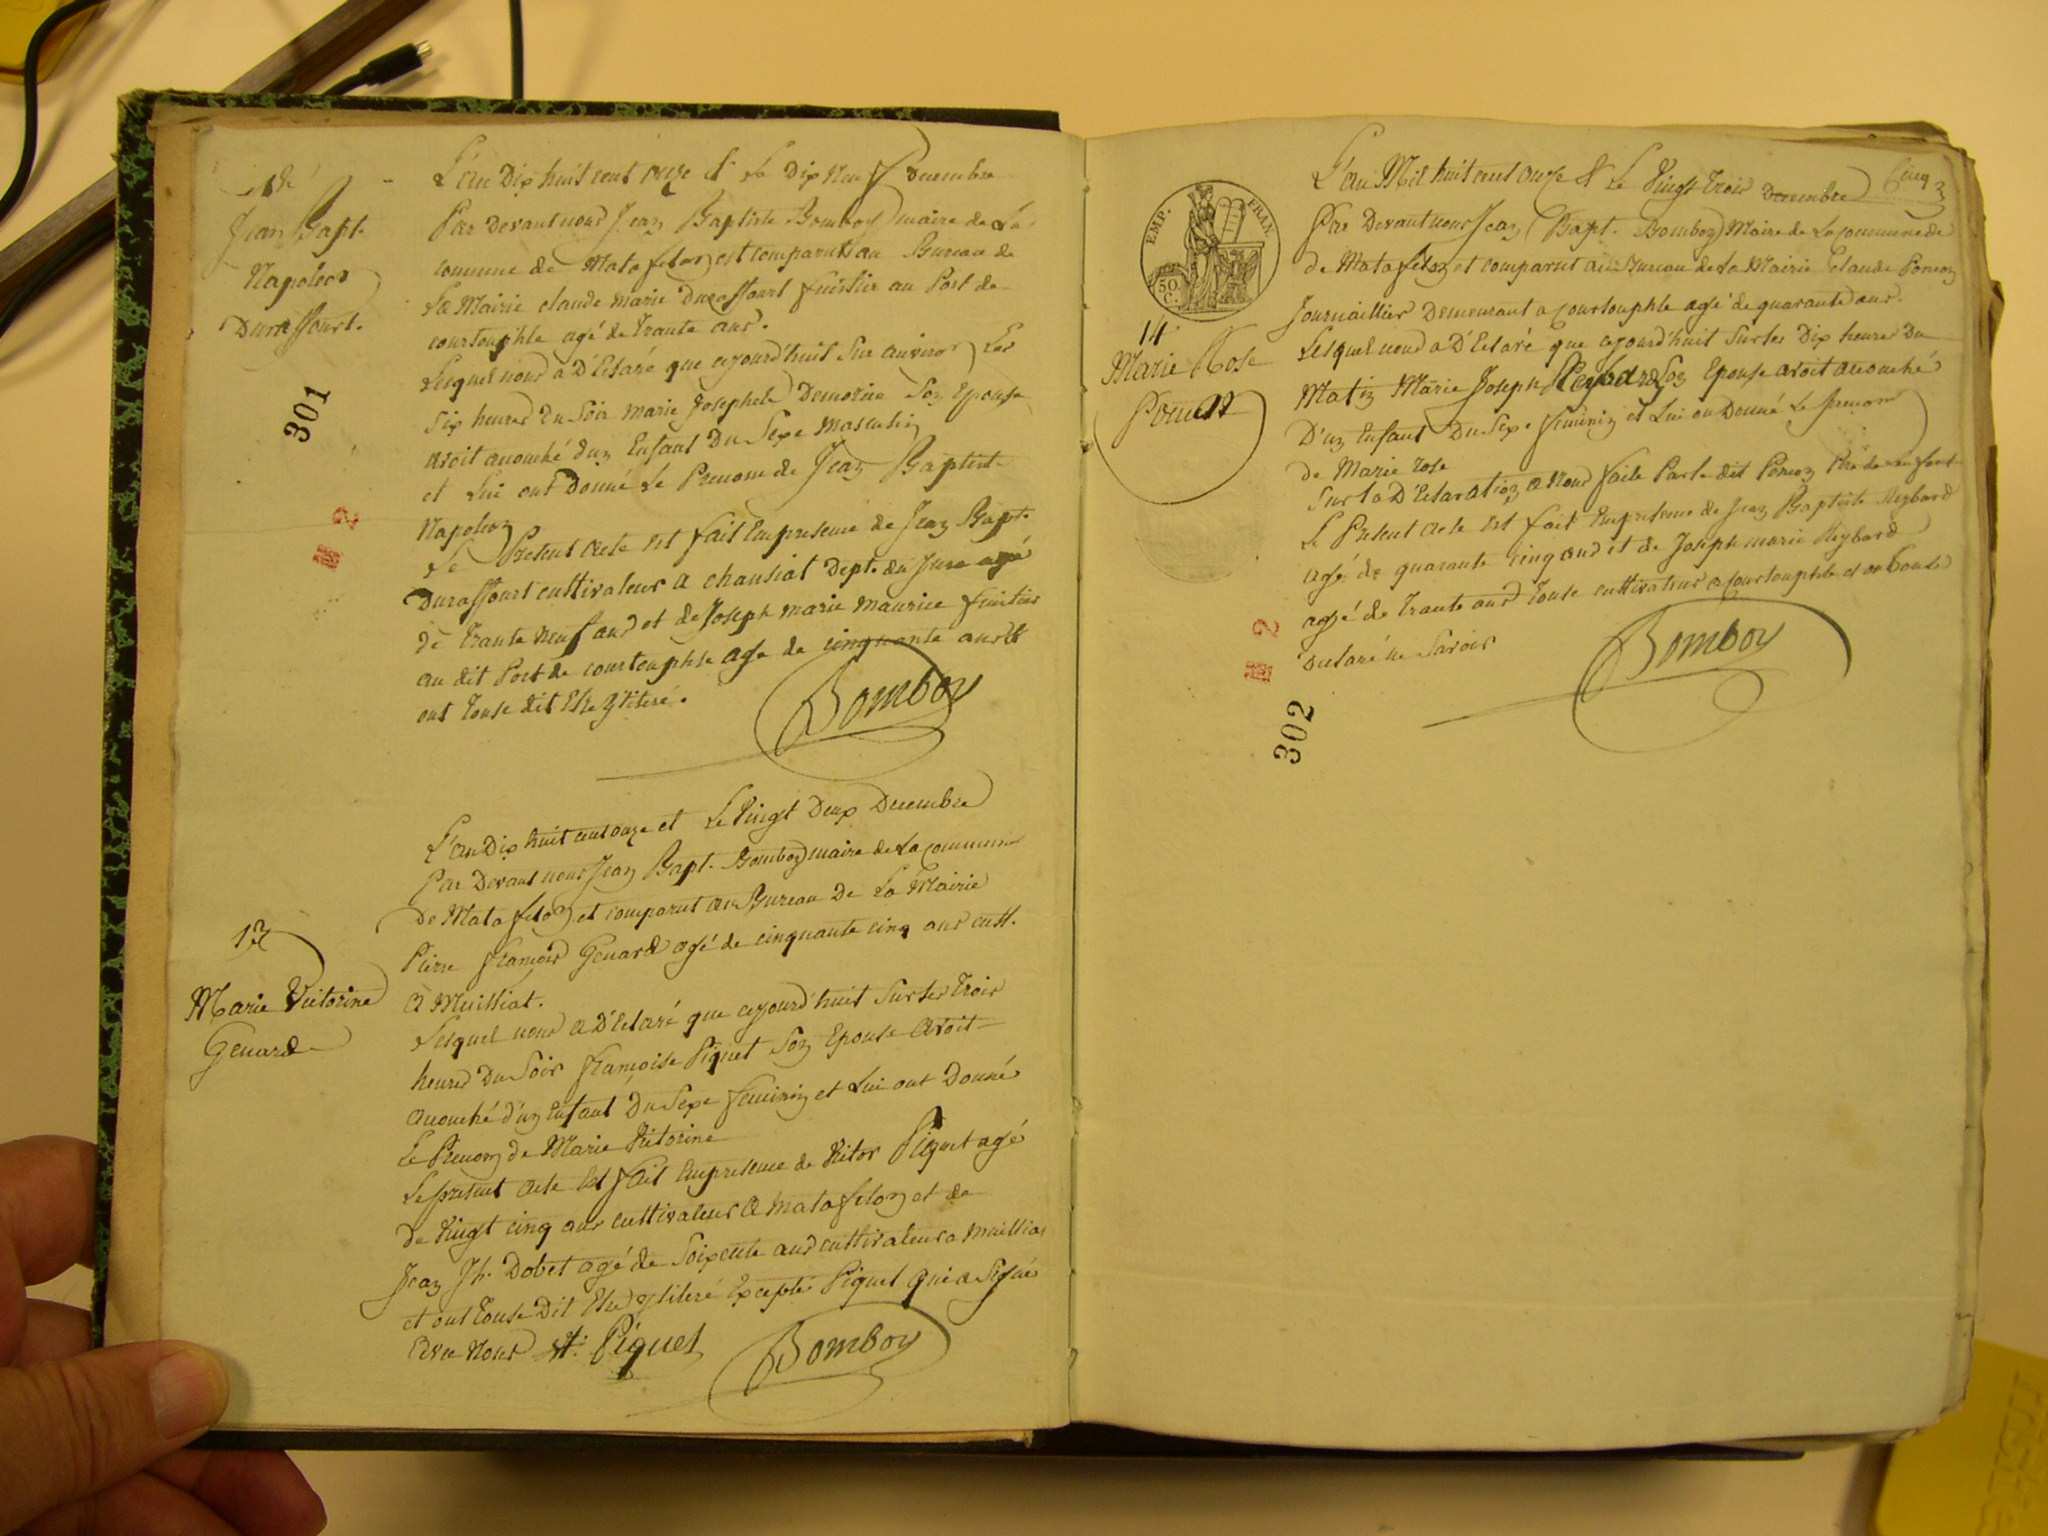 Jean Bapt.
Napoleon
Duraffourt.
L'an Dix huit cent onze & Le Dix Neuf Decembre
Par Devant nous Jean Baptiste Bomboy maire de La
commune de Matafelon est comparut au Bureau de
La Mairie claude marie Duraffourt au Port de
courtouphle agé de trante ans.
Lesquel nous a D'Eclaré que aujourd'huit Sur Les
Six heures du Soir marie Josephete Son Epouse
avoit acouché d'un Enfant Du Sexe Masculin
et Lui ont Donné Le Prenom de Jean Baptiste
Napoleon
Le Present acte Est fait En presence de Jean Bapt.
Duraffourt cultivateur a chansiat Dept. du Jura agé
de trante neuf ans et de Joseph marie maurice
au dit Port de courtouphle age de cinquante ans &
ont touse dit Etre Yliteré.
Bomboy
301
2
13
Marie Victorine
Genard
L'an Dix huit cent onze et Le Vingt Deux Decembre
Par Devant nous Jean Bapt. Bomboy maire de La commune
De Matafelon et comparut au Bureau De La Mairie
Pierre francois Genard agé de cinquante cinq ans cult.
A Meilliat.
Lesquel nous a D'Eclaré que aujourd'huit Sur Les trois
heures Du Soir francoise Piquet Son Epouse avoit
acouché d'un Enfant Du Sexe feminin et Lui ont Donné
Le Prenom de Marie Vitorine
Le present acte Est fait En presence de Vitor Piquet agé
de Vingt cinq ans cultivateur a matafelon et de
Jean Jh. Dobet agé de Soixente ans cultivateur a meilliat
et ont touse Dit Etre yliteré Excepté Piquet qui a Signé
avec Nous vt. Piquet Bomboy
EMP. FRAN.
50. C.
Cinq
14
Marie Rose
Poncon
L'an Mil huit cent onze & Le Vingt trois Decembre
Par Devant nous Jean Bapt. Bomboy Maire de La commune de
de Matafelon et comparut au Bureau de La Mairie Claude Poncon
Journaillier Demeurant a courtouphle agé de quarante ans.
Lesquel nous a D'Eclaré que aujourd'huit Sur les Dix heures Du
Matin Marie Joseph Reybard Son Epouse avoit acouché
D'un Enfant Du Sexe feminin et Lui on Donné Le prenom
de Marie rose
Sur La D'Eclaration a Nous faite Par Le dit Poncon Pere de Lenfant
Le Present acte Est fait En presence de Jean Baptiste Reybard
agé de quarante cinq ans et de Joseph marie Reybard
agé de trante ans touse cultivateur a courtouphle et on touse
Declaré ne Savoir
Bomboy
2
302